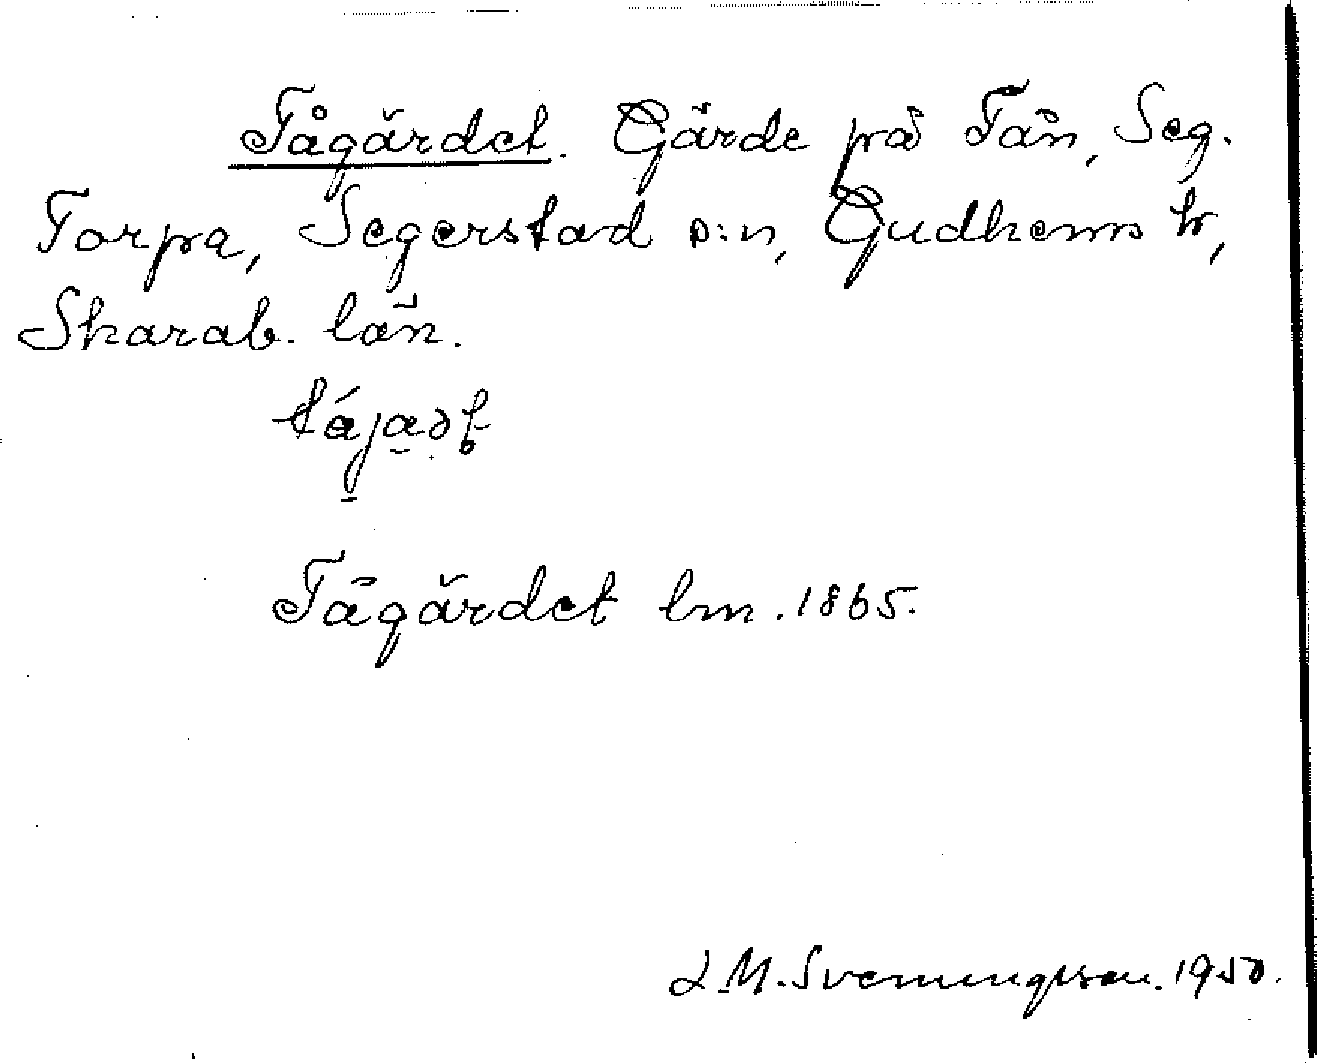 Tågärdet. Gärde på Tån, Seg.
Torpa, Segerstad s:n, Gudhems hr,
Skarab. län.
Tågärdet lm. 1865.
L.M. Svenungsson. 1950.